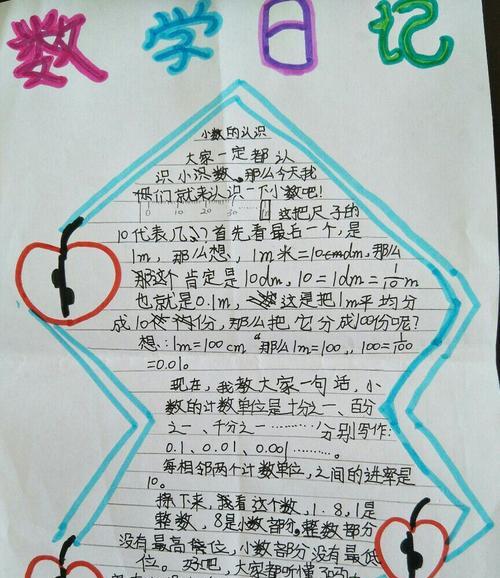 数学日记
小数的认识
大家一定都认
识小数。那么今天我
们就来认识一下小数吧!
0 10 20 30 这把尺子的
10代表几?首先看最后一个,是
1m,那么想,1m米=10dm,那么
那这个肯定是10dm,10=1dm=1/10m
也就是0.1m,这是把1m平均分
成10份,那么把它分成100份呢?
想:1m=100cm 那么1m=100,100=1/100
=0.01。
现在,我教大家一句话,小
数的计数单位是十分之一、百分
之一、千分之一………分别写作:
0.1、0.01、0.001………。
每相邻两个计数单位,之间的进率是
10。
接下来,我看这个数,1.8,1是
整数,8是小数部分。整数部分
没有最高位,小数部分没有最低
位。好吧,大家都听懂了吗